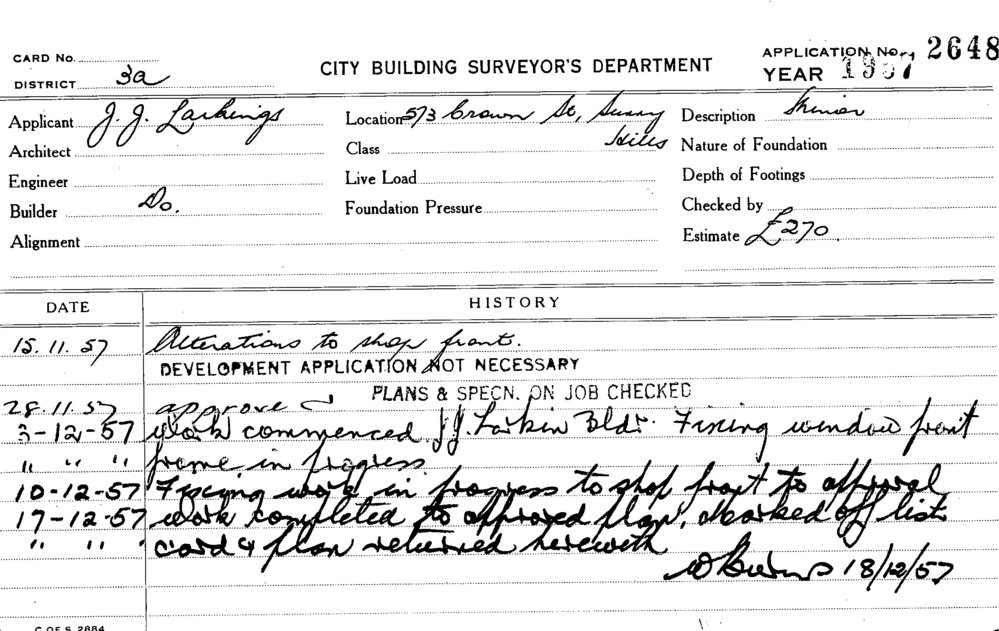 CARD No.
DISTRICT 3a
CITY BUILDING SURVEYOR'S DEPARTMENT
APPLICATION No. 2648
YEAR 1957
Applicant J. J. Larkings
Location 573 Crown St, Surry Hills
Description
Architect
Class
Nature of Foundation
Engineer
Live Load
Depth of Footings
Builder Do.
Foundation Pressure
Checked by
Alignment
Estimate £270.
DATE HISTORY
15.11.57 Alterations to shop front.
DEVELOPMENT APPLICATION NOT NECESSARY
PLANS & SPECN. ON JOB CHECKED
28.11.57 approved
3-12-57 Work commenced J.J. Larkin Bldr. Fixing window front
" " " frame in progress.
10-12-57 Fixing work in progress to shop front to approval
17-12-57 work completed to approved plan, Marked off list
" " " card & plan returned herewith
18/12/57
C OF S 2884